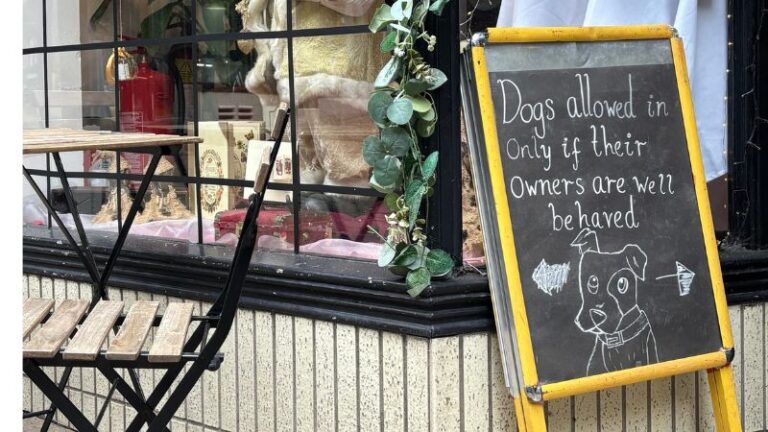 Dogs allowed in
only if their
owners are well
behaved